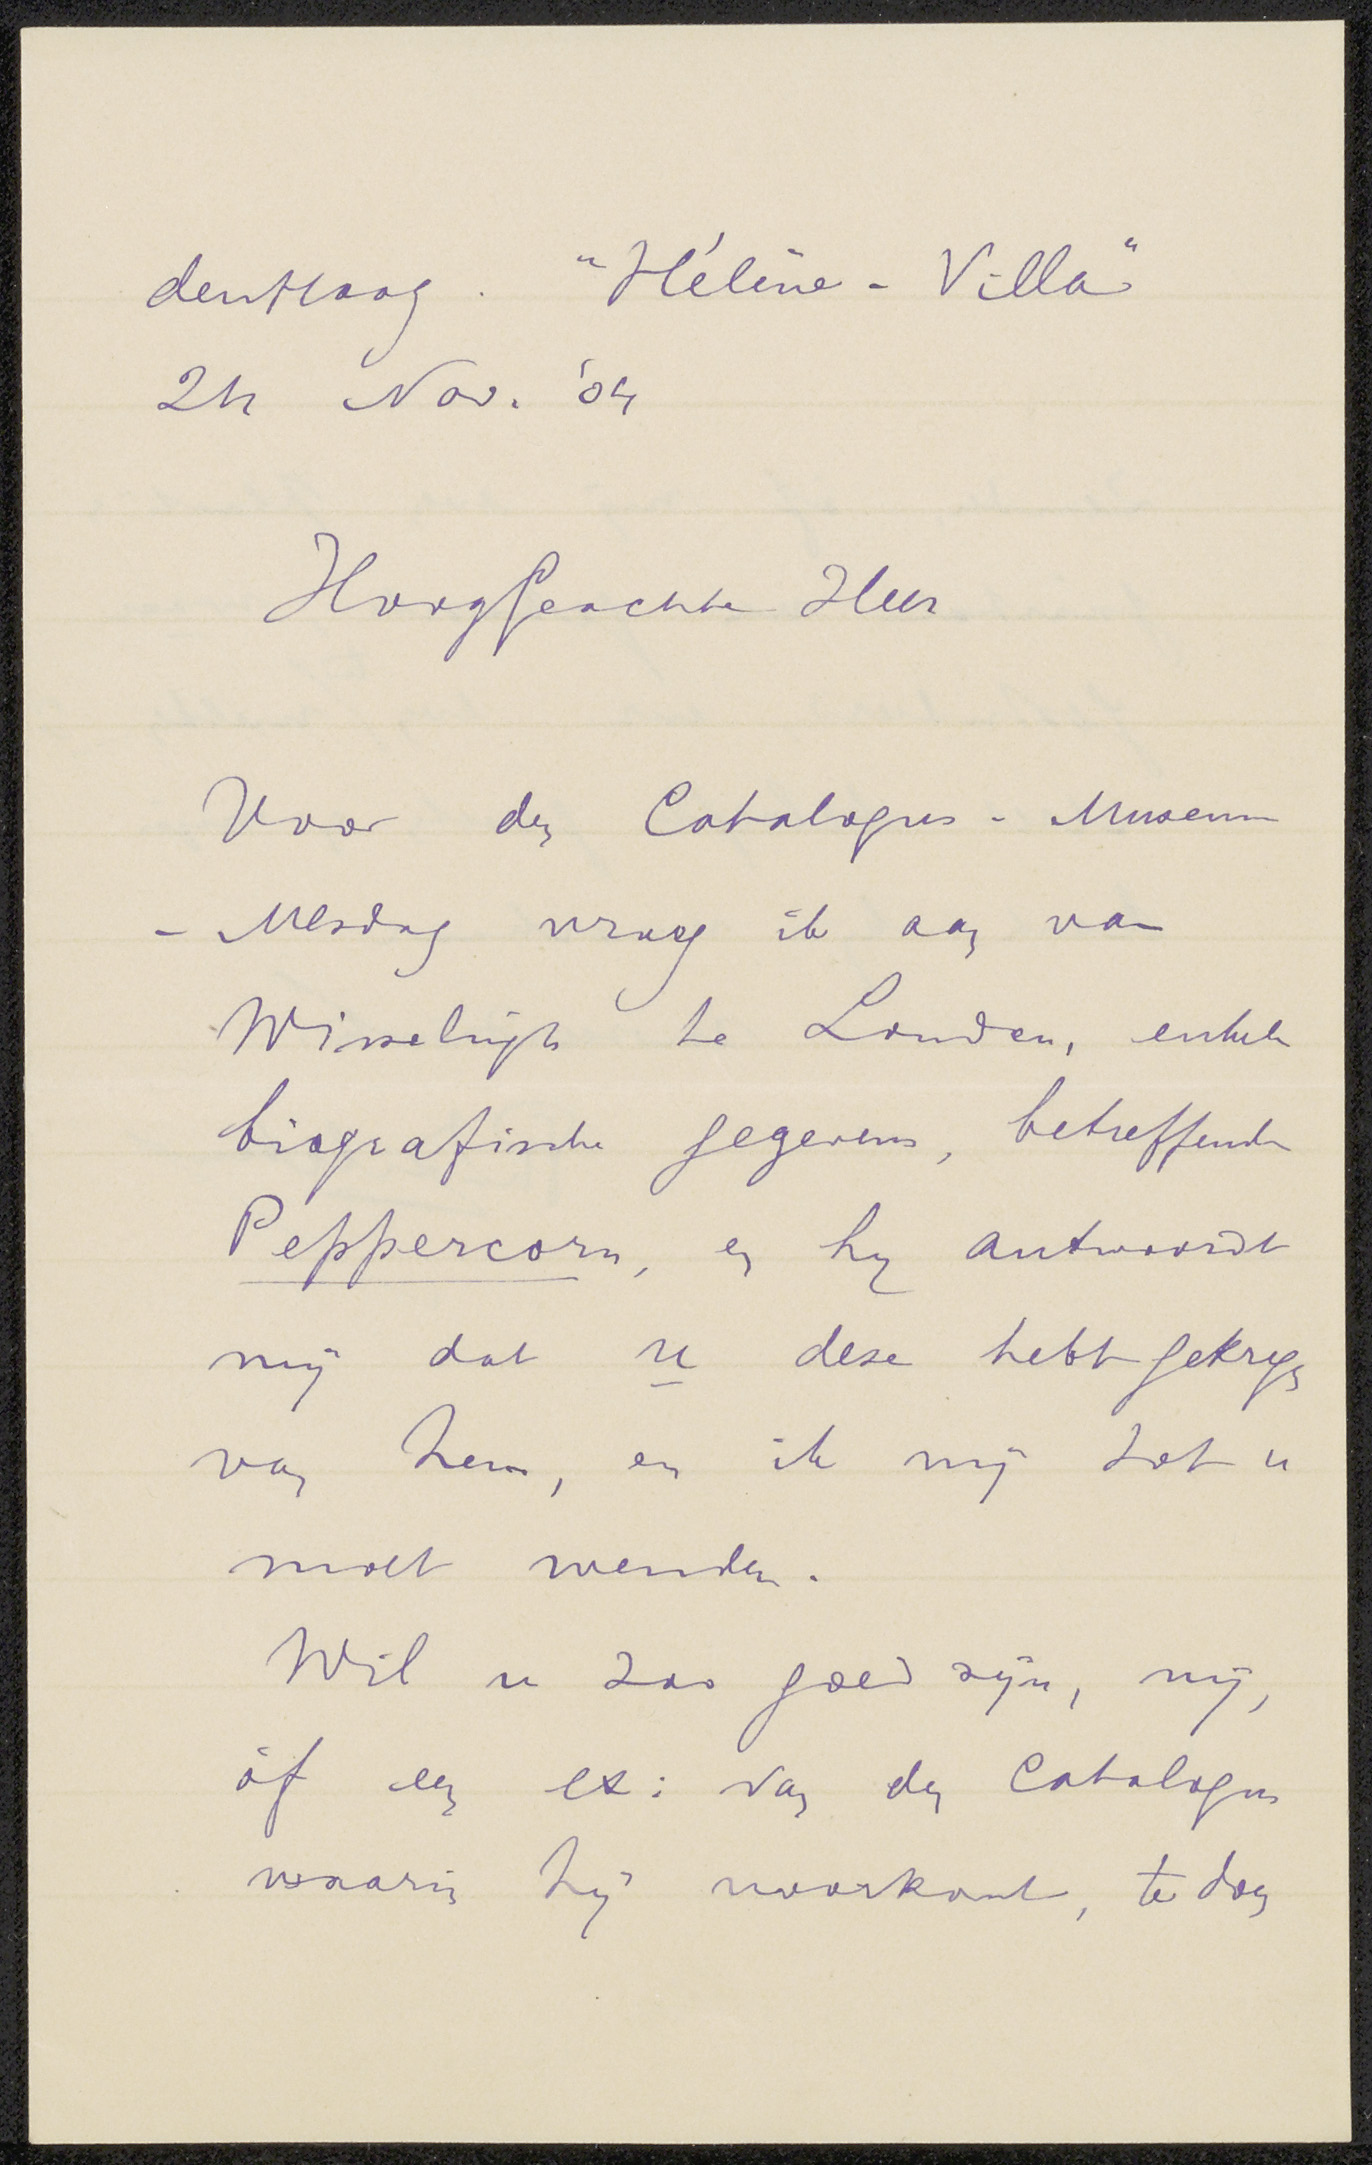 den Haag. "Hélène-Villa"
24 Nov. '04
Hooggeachte Heer
Voor den Catalogus - Museum
- Mesdag vroeg ik aan van
Wisselingh te Londen, enkele
biografische gegevens, betreffende
Peppercorn, en hij antwoordt
mij dat u deze hebt gekregen
van hem, en ik mij tot u
moet wenden.
Wil u zoo goed zijn, mij,
òf een ex: van den Catalogus
waarin hij voorkomt, te doen